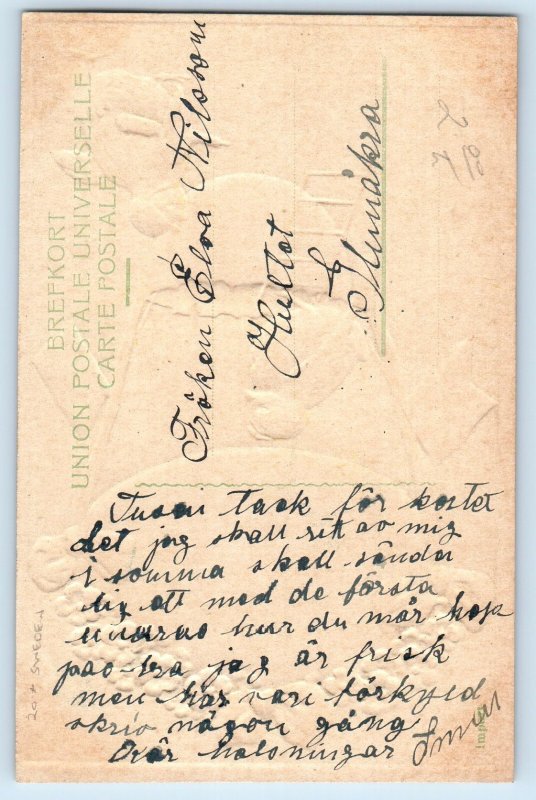 BREFKORT
UNION POSTALE UNIVERSELLE
CARTE POSTALE
Fröken Elva Nilsson
Hultet
Glimåkra
Tusen tack för kortet
det jag skall av mig
i somma skall sända
dig ett med de första
hur du mår hop
pas bra jag är frisk
men har vari förkyld
skriv någon gång
halsningar
20¢ SWEDEN